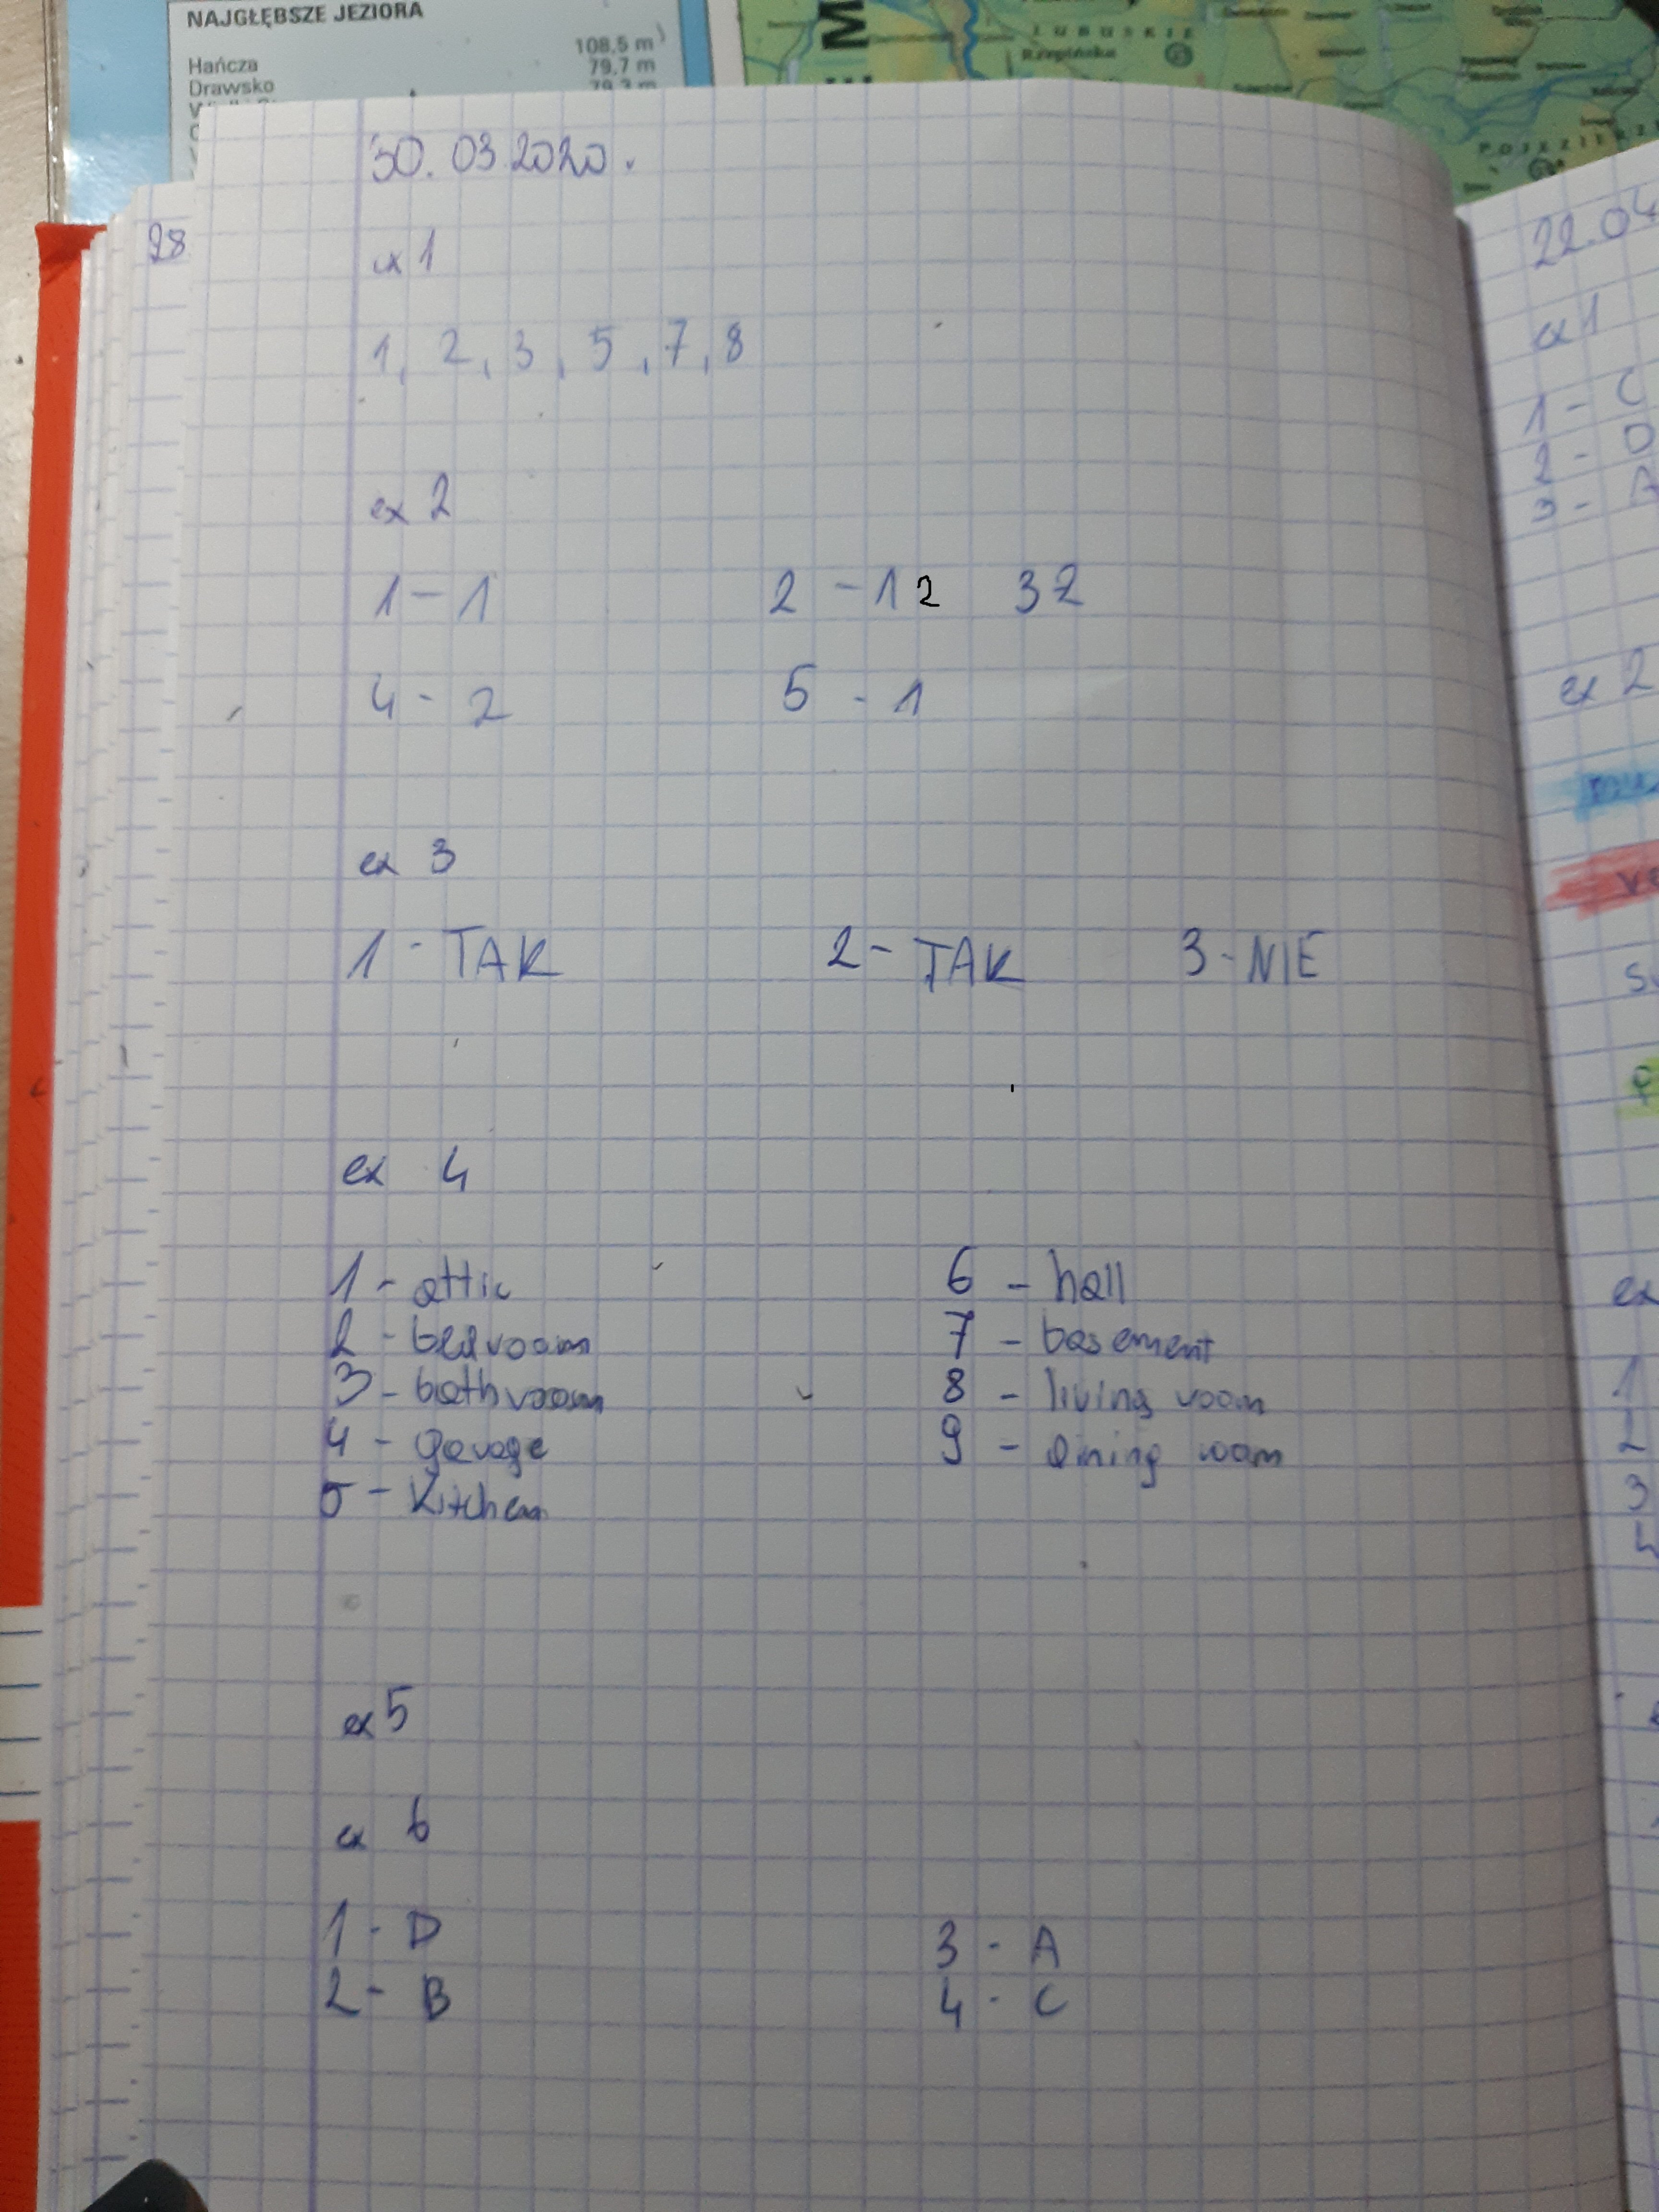 NAJGŁĘBSZE JEZIORA
108,5 m
Hańcza 79,7 m
Drawsko 79,3 m
LUBUSKIE
Rzepińska
30.03.2020.
28
ex 1
1, 2, 3, 5, 7, 8
ex 2
1-1 2-12 32
4-2 5-1
ex 3
1-TAK 2-TAK 3-NIE
ex 4
1-attic 6-hall
2-bedroom 7-basement
3-bathroom 8-living room
4-garage 9-dining room
5-Kitchen
ex 5
ex 6
1-D 3-A
2-B 4-C
22.04
ex 1
1-C
2-D
3-A
ex 2
ex
1
2
3